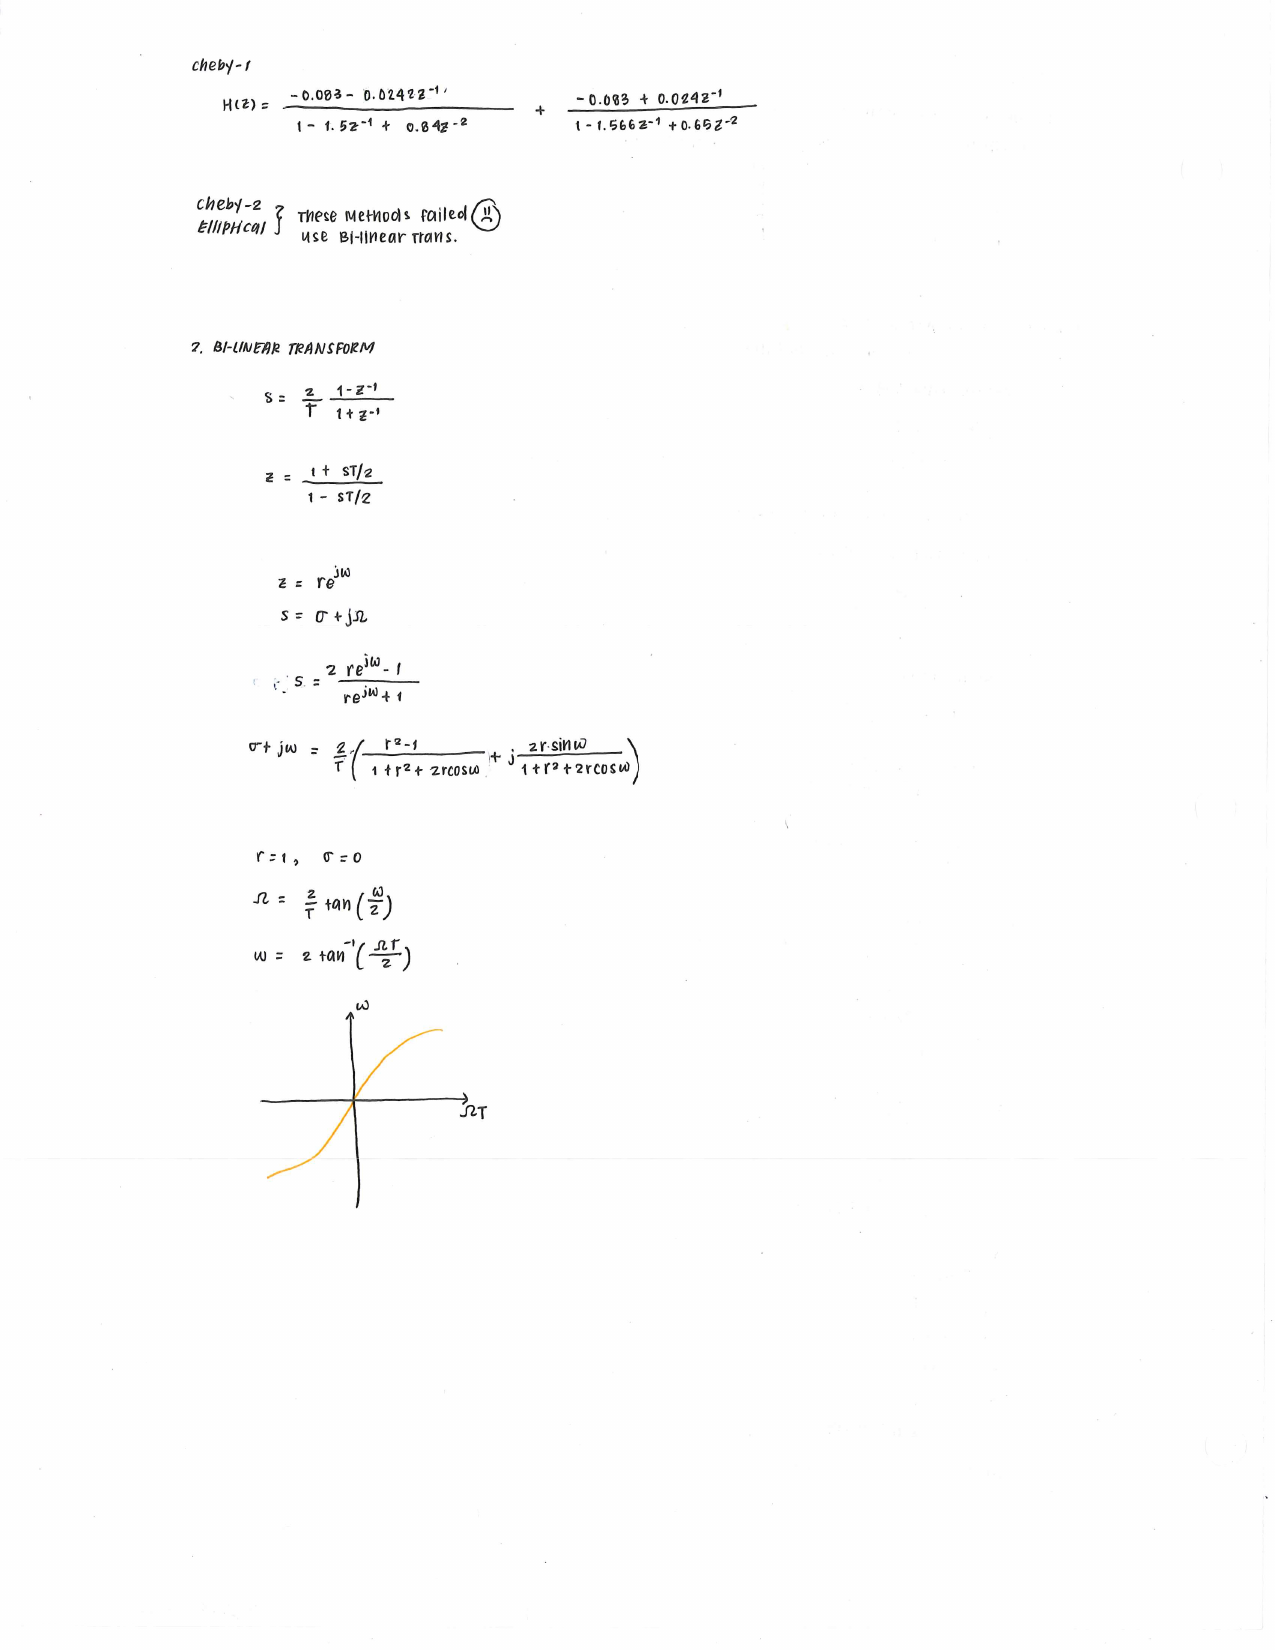 cheby-1
H(z) = (-0.083 - 0.0242z⁻¹) / (1 - 1.5z⁻¹ + 0.84z⁻²) + (-0.083 + 0.024z⁻¹) / (1 - 1.566z⁻¹ + 0.65z⁻²)
cheby-2
Elliptical } These Methods failed
use Bi-linear Trans.
2. BI-LINEAR TRANSFORM
s = 2/T (1 - z⁻¹)/(1 + z⁻¹)
z = (1 + sT/2)/(1 - sT/2)
z = re^{jω}
s = σ + jΩ
∴ s = (2 re^{jω} - 1)/(re^{jω} + 1)
σ + jω = 2/T ( (r² - 1)/(1 + r² + 2r cos ω) + j (2r·sin ω)/(1 + r² + 2r cos ω) )
r = 1, σ = 0
Ω = 2/T tan(ω/2)
ω = 2 tan⁻¹(ΩT/2)
ω
ΩT